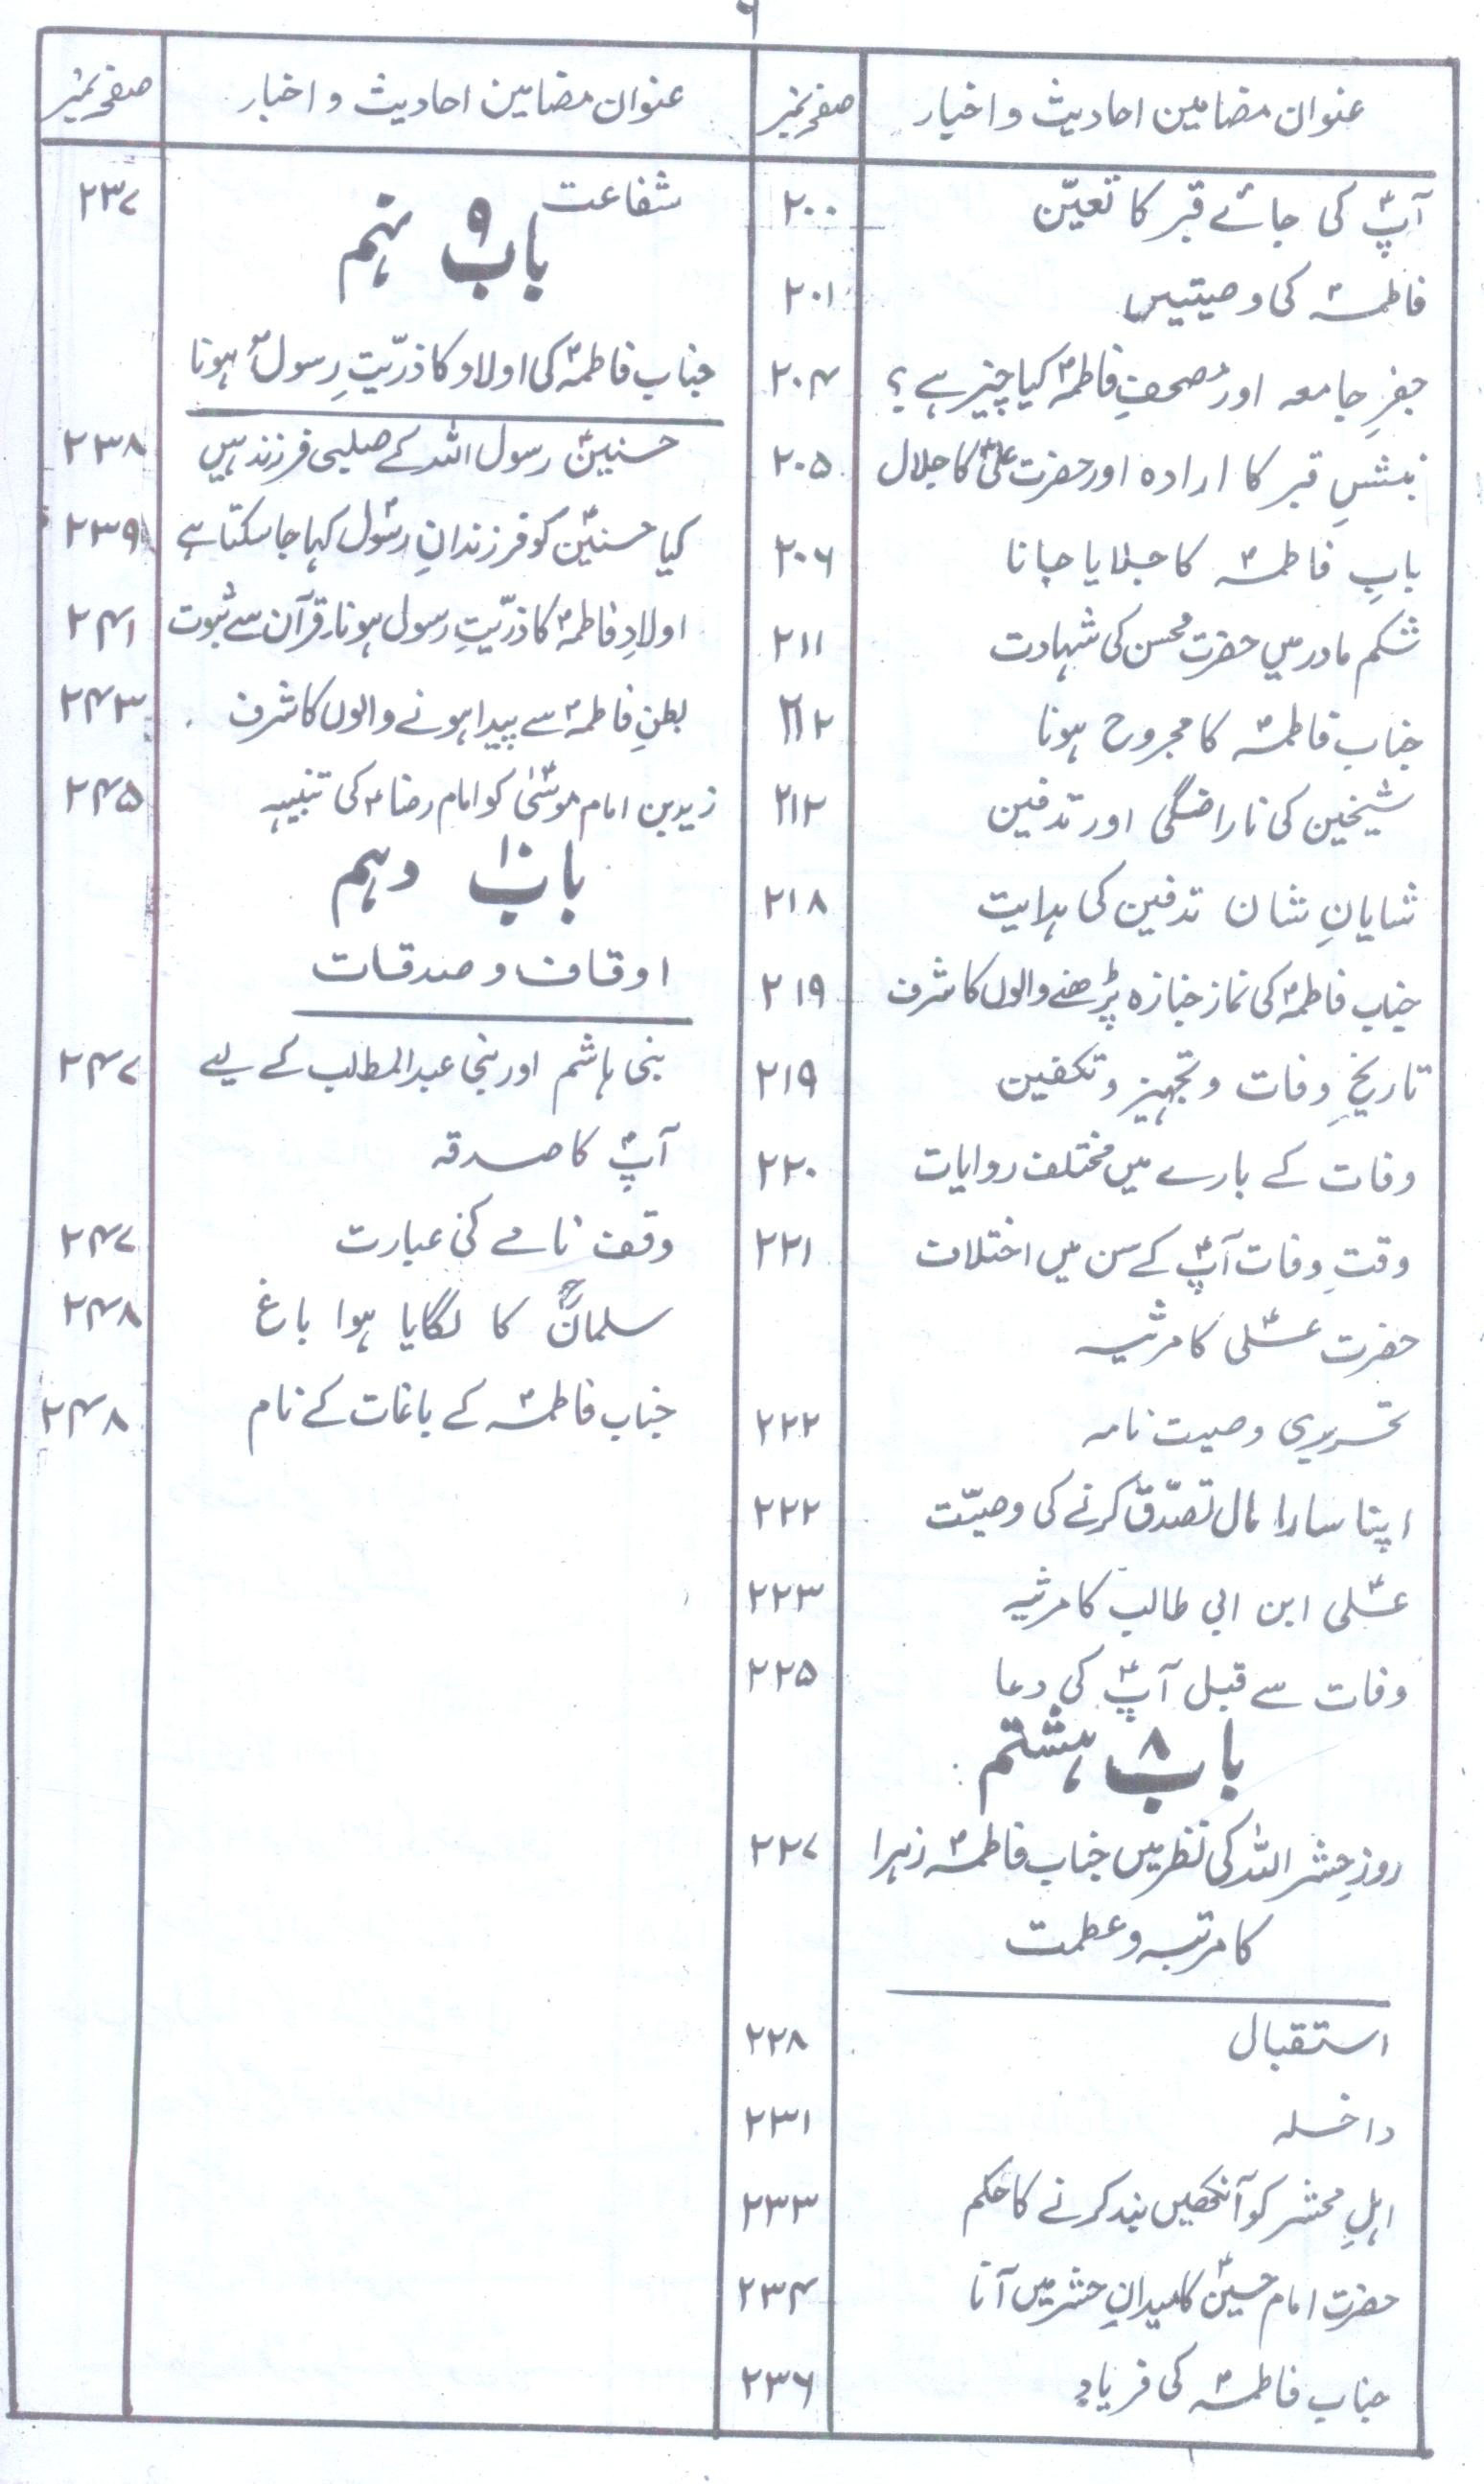 ۶
عنوان مضامین احادیث و اخبار صفحہ نمبر
آپؑ کی جائے قبر کا تعیّن ۲۰۰
فاطمہؑ کی وصیتیں ۲۰۱
جفرِ جامعہ اور مُصحفِ فاطمہؑ کیا چیز ہے؟ ۲۰۴
نبشسِ قبر کا ارادہ اور حضرت علیؑ کا جلال ۲۰۵
بابِ فاطمہؑ کا جلایا جانا ۲۰۶
شکم مادر میں حضرت محسن کی شہادت ۲۱۱
جناب فاطمہؑ کا مجروح ہونا ۲۱۲
شیخین کی ناراضگی اور تدفین ۲۱۲
شایانِ شان تدفین کی ہدایت ۲۱۸
جناب فاطمہؑ کی نماز جنازہ پڑھنے والوں کا شرف ۲۱۹
تاریخِ وفات و تجہیز و تکفین ۲۱۹
وفات کے بارے میں مختلف روایات ۲۲۰
وقتِ وفات آپؑ کے سن میں اختلاف ۲۲۱
حضرت علیؑ کا مرثیہ
تحریری وصیت نامہ ۲۲۲
اپنا سارا مال تصدّق کرنے کی وصیّت ۲۲۲
علیؑ ابن ابی طالب کا مرثیہ ۲۲۳
وفات سے قبل آپؑ کی دعا ۲۲۵
باب ۸ ہشتم
روزِ حشر اللہ کی نظر میں جناب فاطمہؑ زہرا ۲۲۷
کا مرتبہ و عظمت
استقبال ۲۲۸
داخلہ ۲۳۱
اہلِ محشر کو آنکھیں بند کرنے کا حکم ۲۳۳
حضرت امام حسینؑ کا میدانِ حشر میں آنا ۲۳۴
جناب فاطمہؑ کی فریاد ۲۳۶
عنوان مضامین احادیث و اخبار صفحہ نمبر
شفاعت ۲۳۷
باب ۹ نہم
جناب فاطمہؑ کی اولاد کا ذرّیتِ رسولؐ ہونا
حسنینؑ رسول اللہ کے صلبی فرزند ہیں ۲۳۸
کیا حسنینؑ کو فرزندانِ رسولؐ کہا جاسکتا ہے ۲۳۹
اولادِ فاطمہؑ کا ذرّیتِ رسول ہونا، قرآن سے ثبوت ۲۴۱
بطنِ فاطمہؑ سے پیدا ہونے والوں کا شرف ۲۴۳
زید بن امام موسیٰؑ کو امام رضاؑ کی تنبیہہ ۲۴۵
باب ۱۰ دہم
اوقاف و صدقات
بنی ہاشم اور بنی عبدالمطالب کے لیے ۲۴۷
آپؑ کا صدقہ
وقف نامے کی عبارت ۲۴۷
سلمانؓ کا لگایا ہوا باغ ۲۴۸
جناب فاطمہؑ کے باغات کے نام ۲۴۸